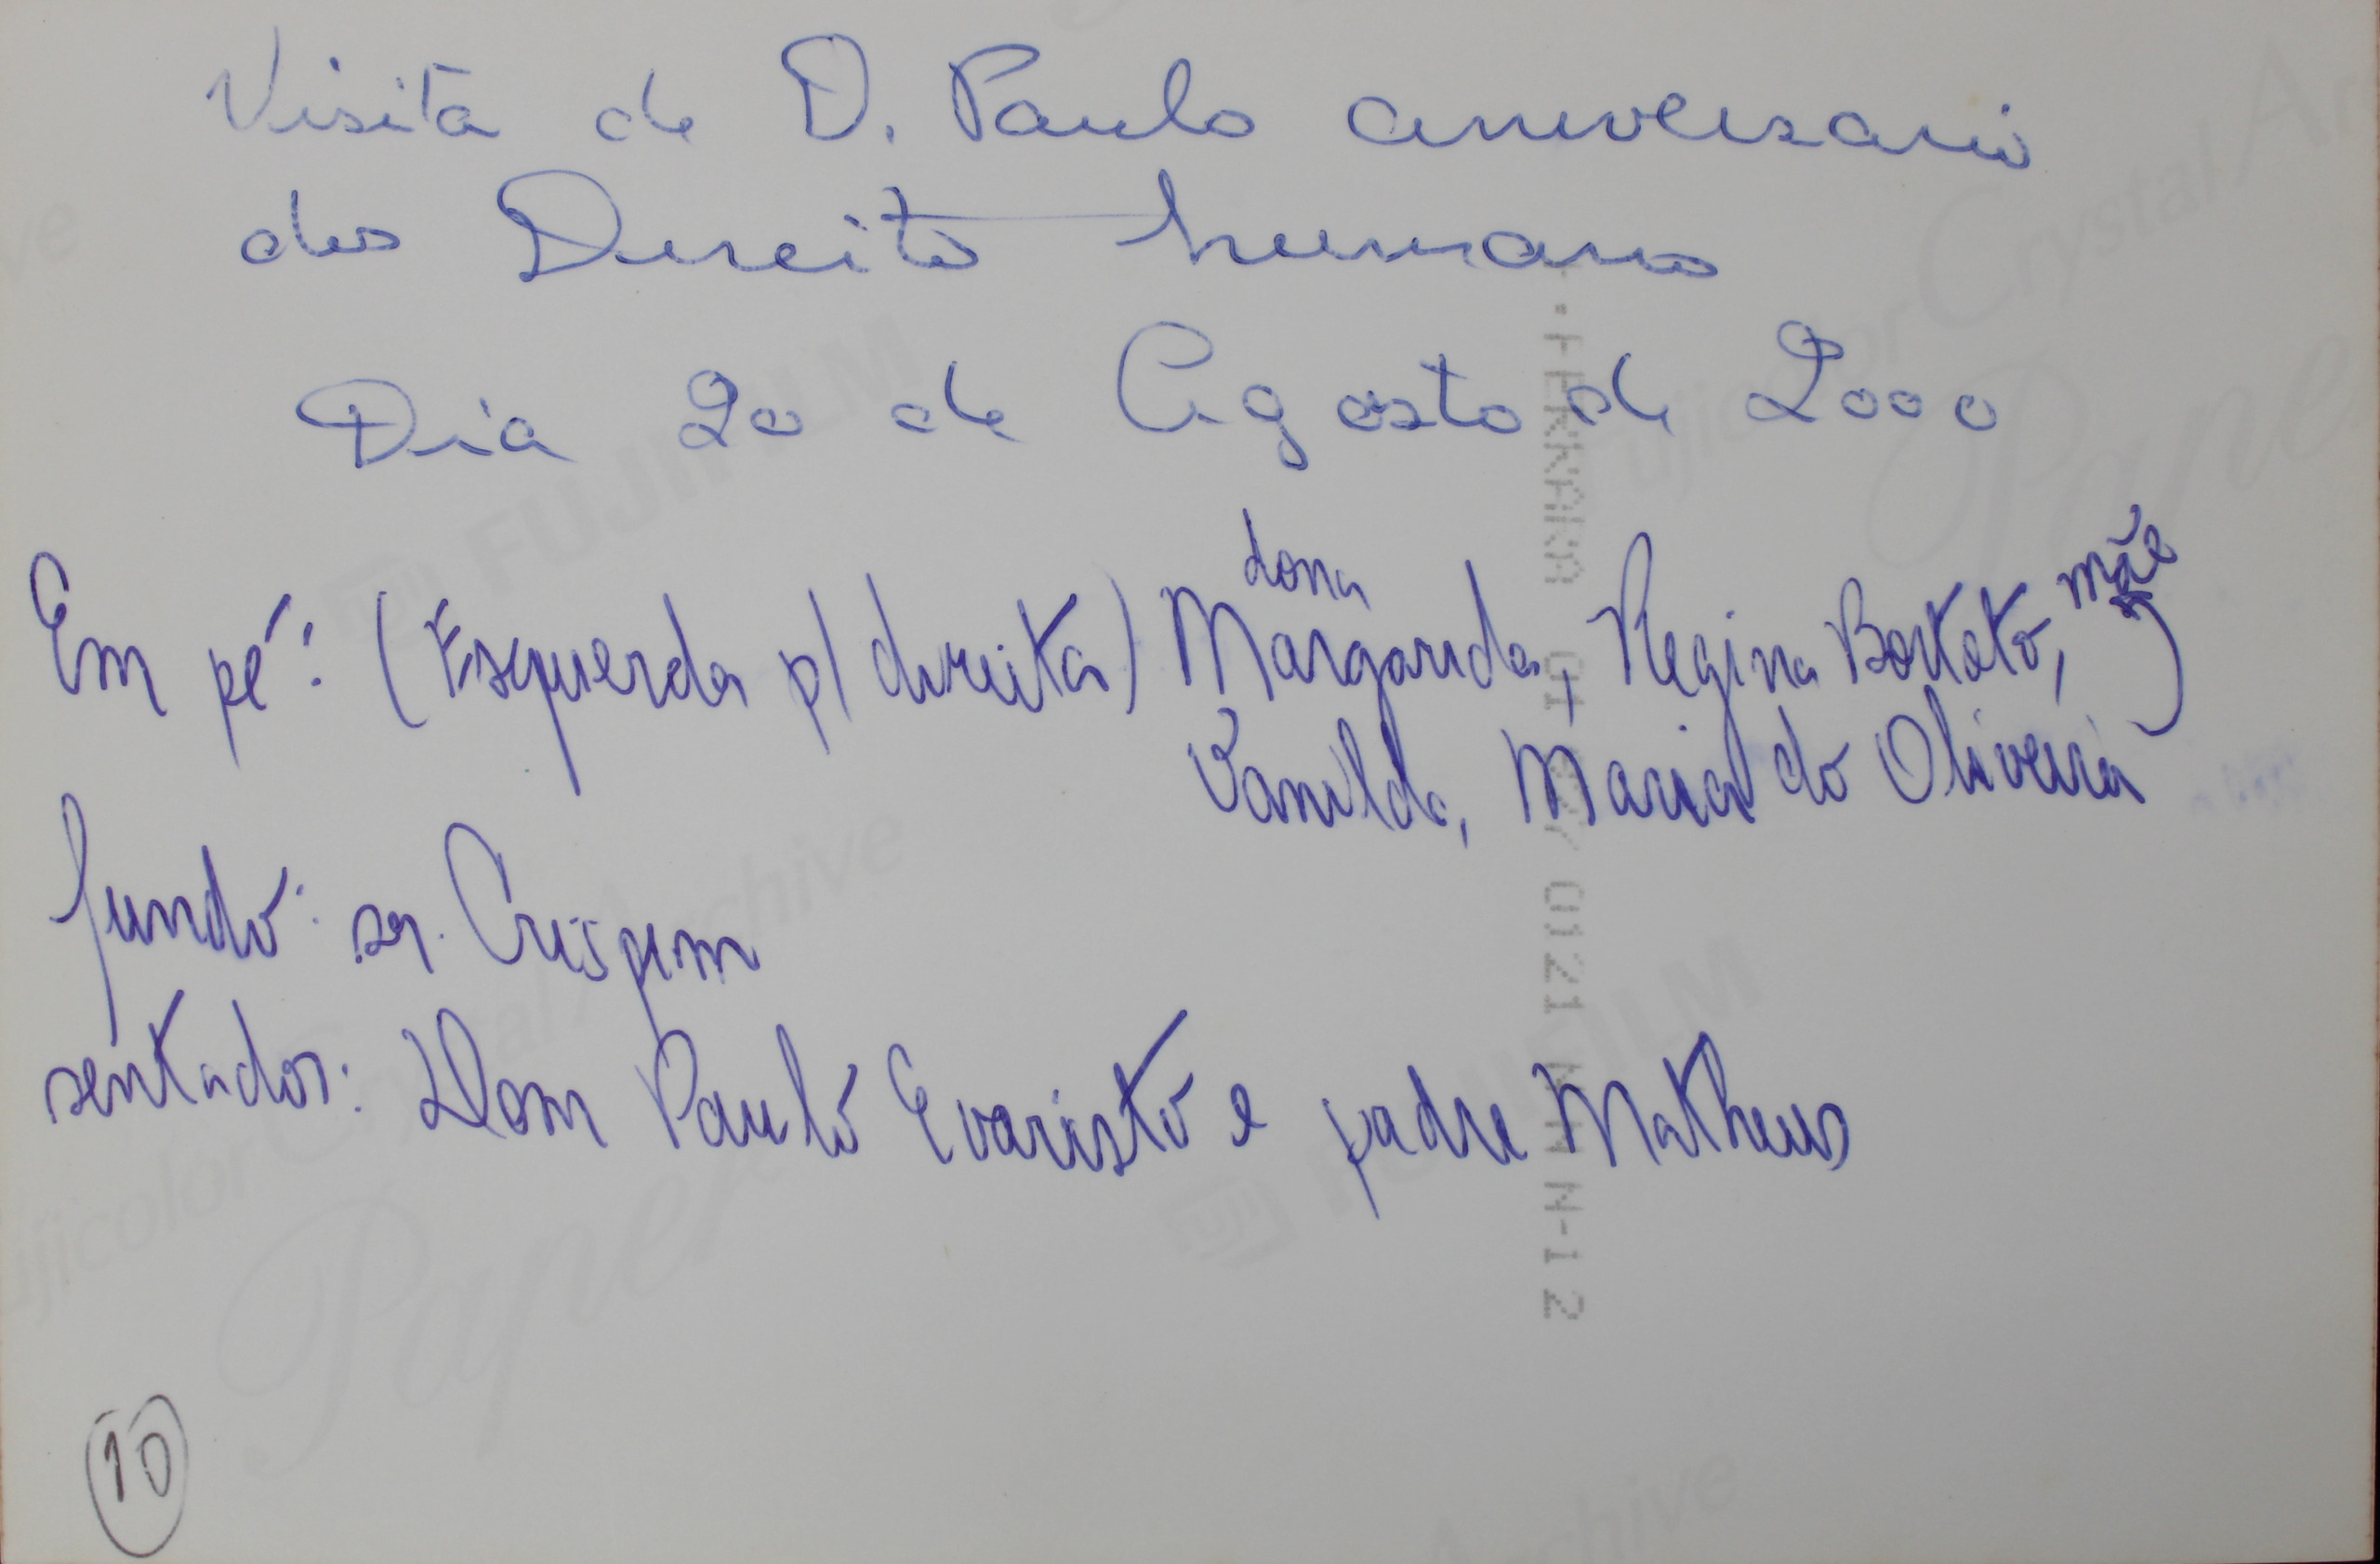 Visita de D. Paulo aniversario
dos Direito humano
Dia 20 de Agosto de 2000
Em pé: (Esquerda p/ direita) dona Margarida, Regina Bortoto, mãe
Vanilda, Maria do Oliveira
fundo: sr. Crispim
sentados: Dom Paulo Evaristo e padre Matheus
10
FUJIFILM
Fujicolor Crystal Archive
Paper